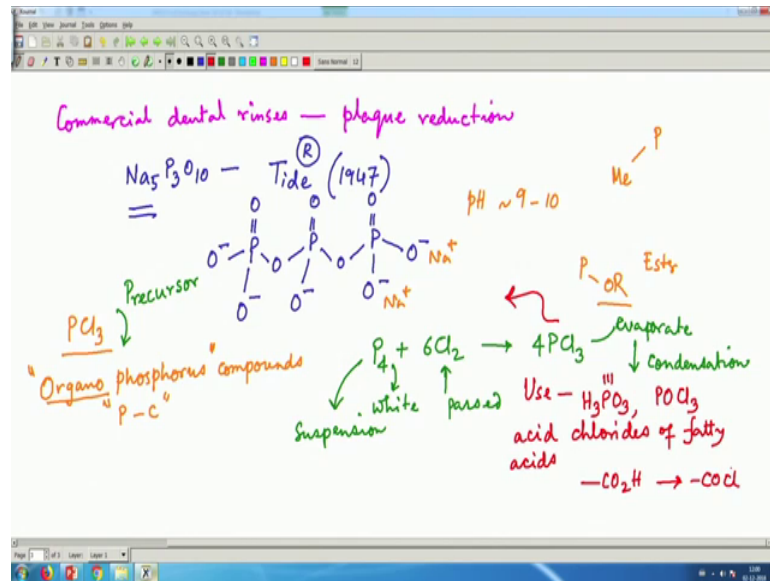 Journal
File Edit View Journal Tools Options Help
Sans Normal 12
Commercial dental rinses — plaque reduction
Na5P3O10 — Tide ® (1947)
pH ~ 9 - 10
Me P
O O O
|| || ||
O⁻ P O P O P O⁻ Na⁺
O⁻ O⁻ O⁻ Na⁺
P OR Ester
Precursor
PCl3
"Organo phosphorus" compounds
"P-C"
P4 + 6Cl2 → 4PCl3
evaporate
condensation
white
passed
Suspension
Use — H3PO3, POCl3
III
acid chlorides of fatty
acids
—CO2H → -COCl
Page 3 of 3 Layer: Layer 1
12:00